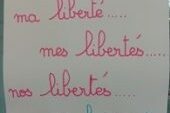 ma liberté.....
mes libertés.....
nos libertés.....